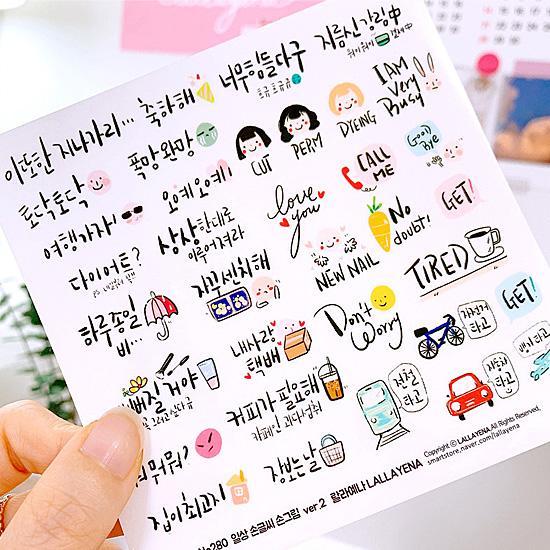 이또한 지나가리...
축하해
너무힘들다구
지름신 강림中
토닥토닥
폭망 완망
CUT
PERM
DYEING
I AM
Very
Busy
여행가자!
오예 오예!
CALL
ME
Good
Bye
다이어트?
상상한대로
이루어져라
love
you
NO
doubt!
GET!
하루종일
비...
자꾸 센치해
NEW NAIL
TIRED
빠질거야
내사랑
택배
Don't
Worry
자전거
타고
GET!
커피가 필요해
카페인 과다섭취
전철
타고
자동차
타고
비행기
타고
뭐뭐?
장보는날
집이최고지
Copyright ⓒ LALLAYENA All Rights Reserved.
smartstore.naver.com/lallayena
No280 일상 손글씨 손그림 ver.2 랄라예나 LALLAYENA